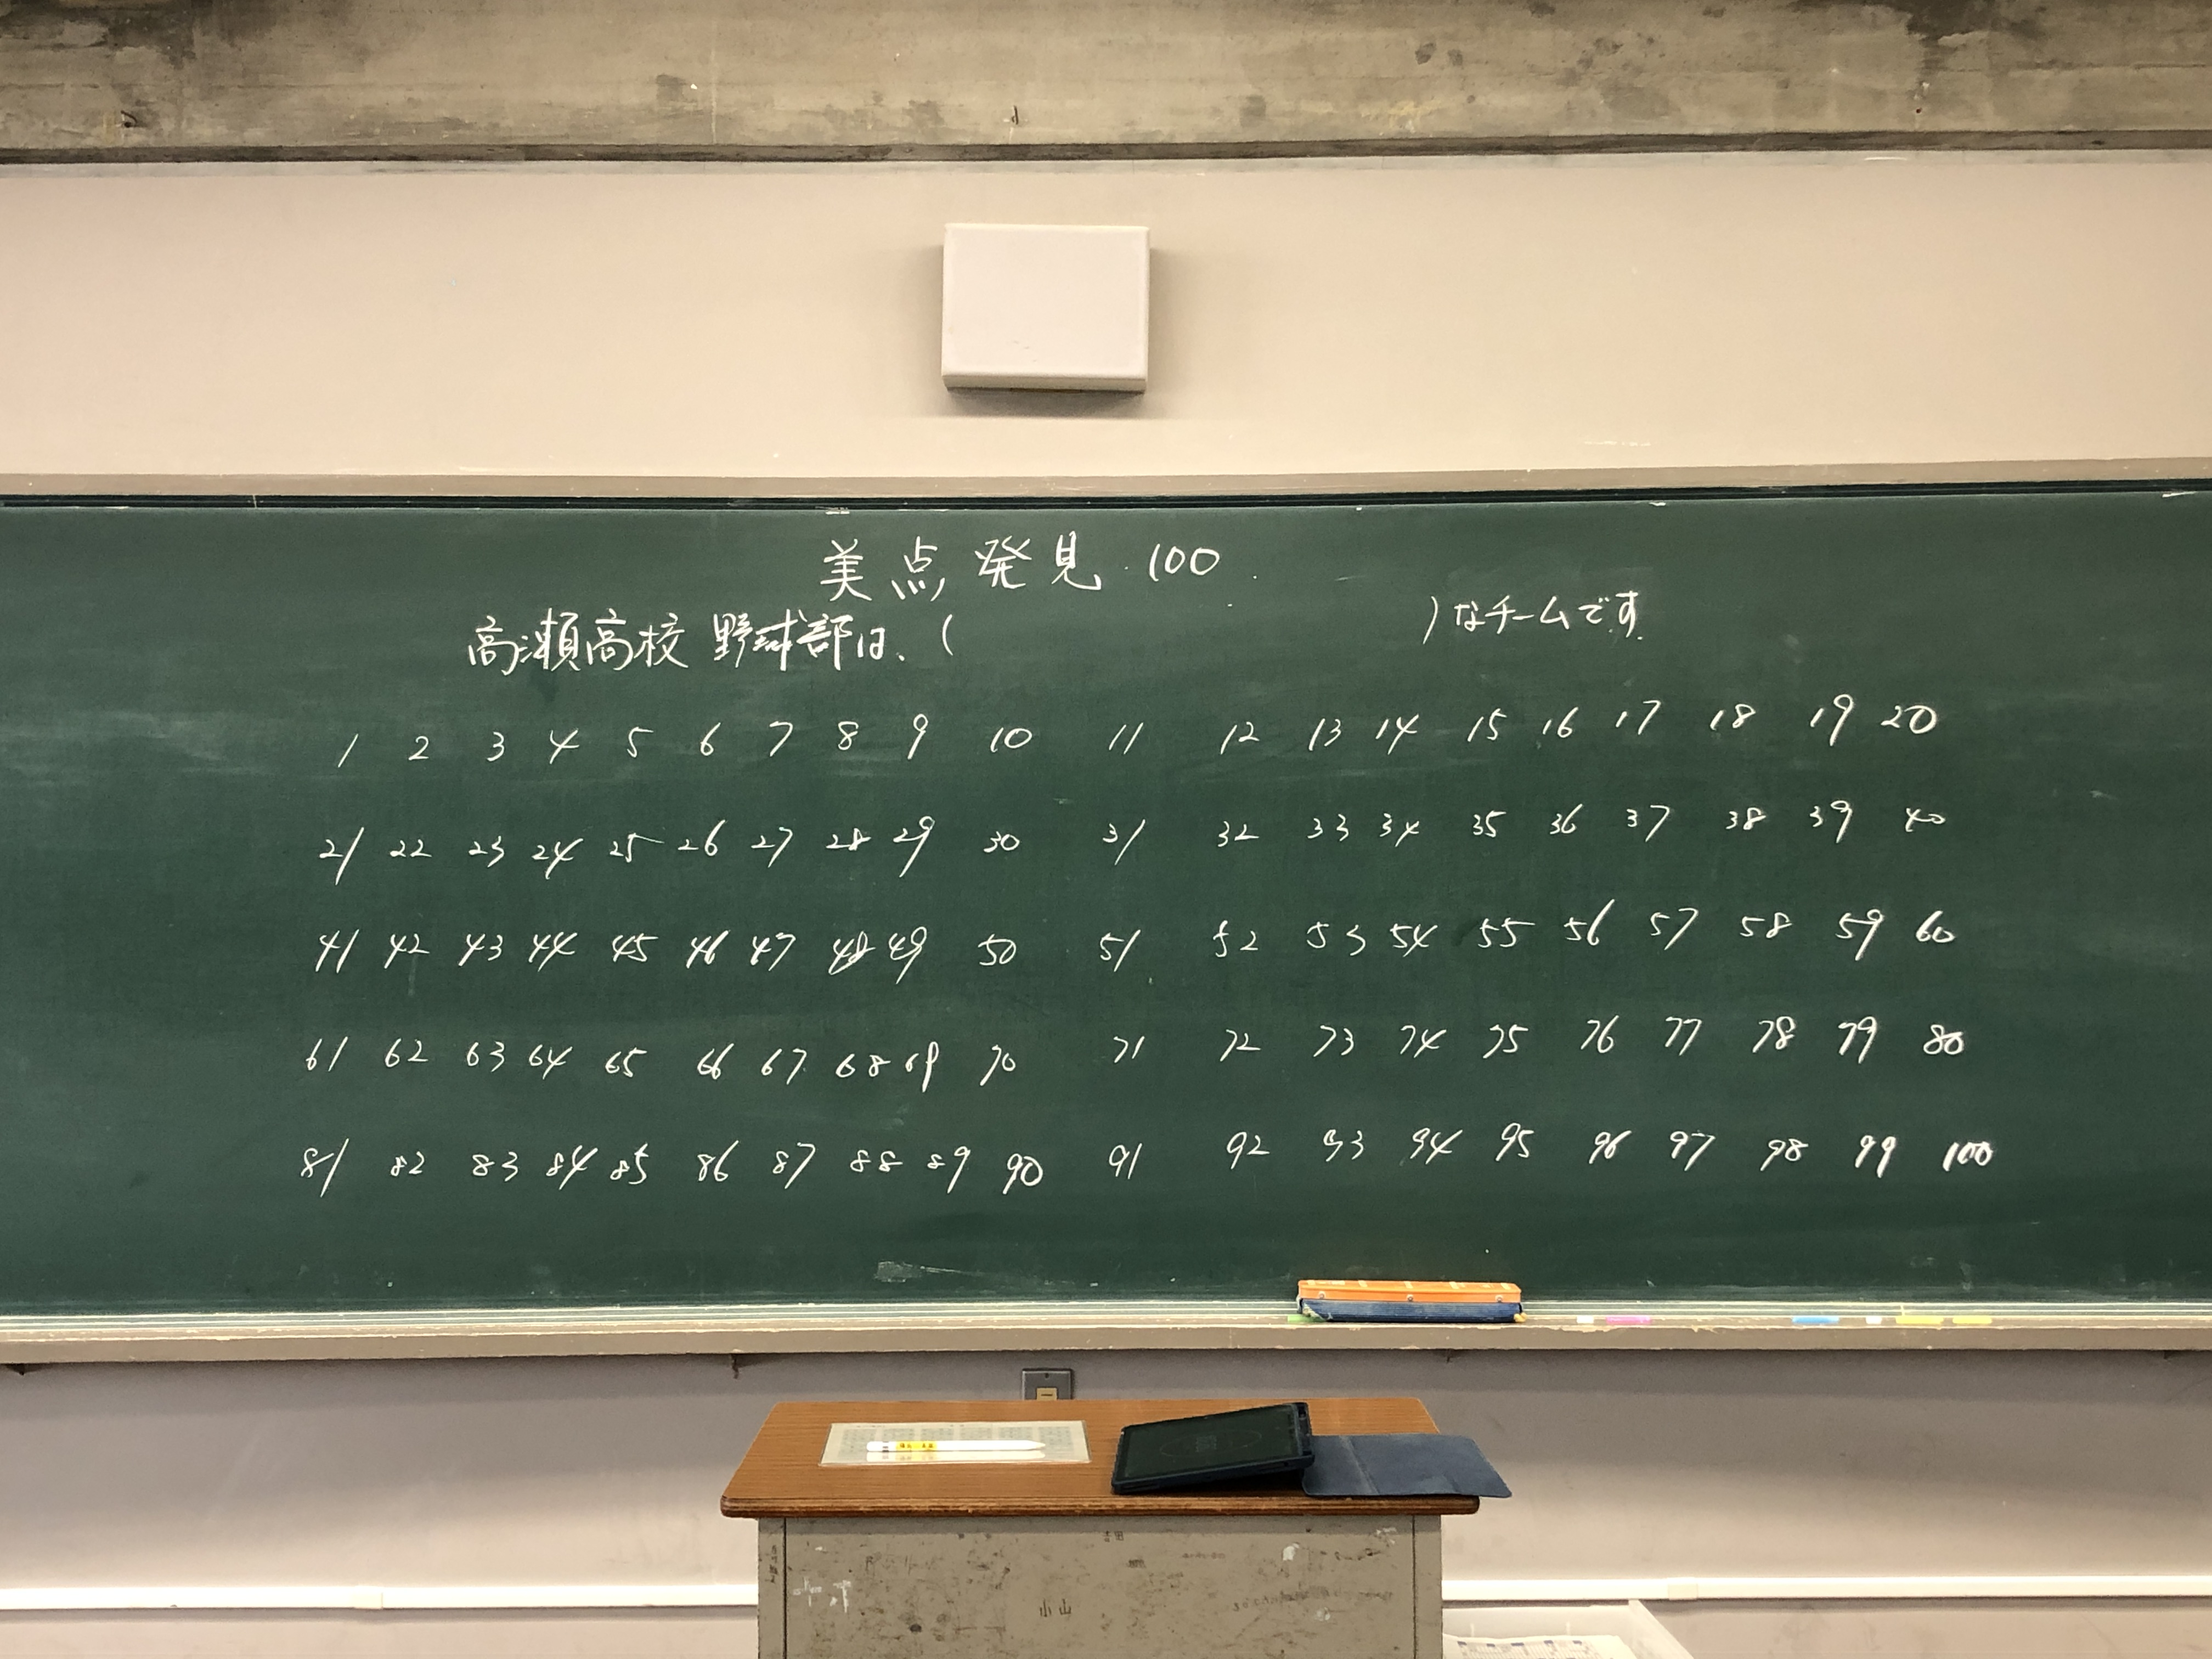 美点発見 100
高瀬高校 野球部は、( )なチームです
1 2 3 4 5 6 7 8 9 10 11 12 13 14 15 16 17 18 19 20
21 22 23 24 25 26 27 28 29 30 31 32 33 34 35 36 37 38 39 40
41 42 43 44 45 46 47 48 49 50 51 52 53 54 55 56 57 58 59 60
61 62 63 64 65 66 67 68 69 70 71 72 73 74 75 76 77 78 79 80
81 82 83 84 85 86 87 88 89 90 91 92 93 94 95 96 97 98 99 100
小山